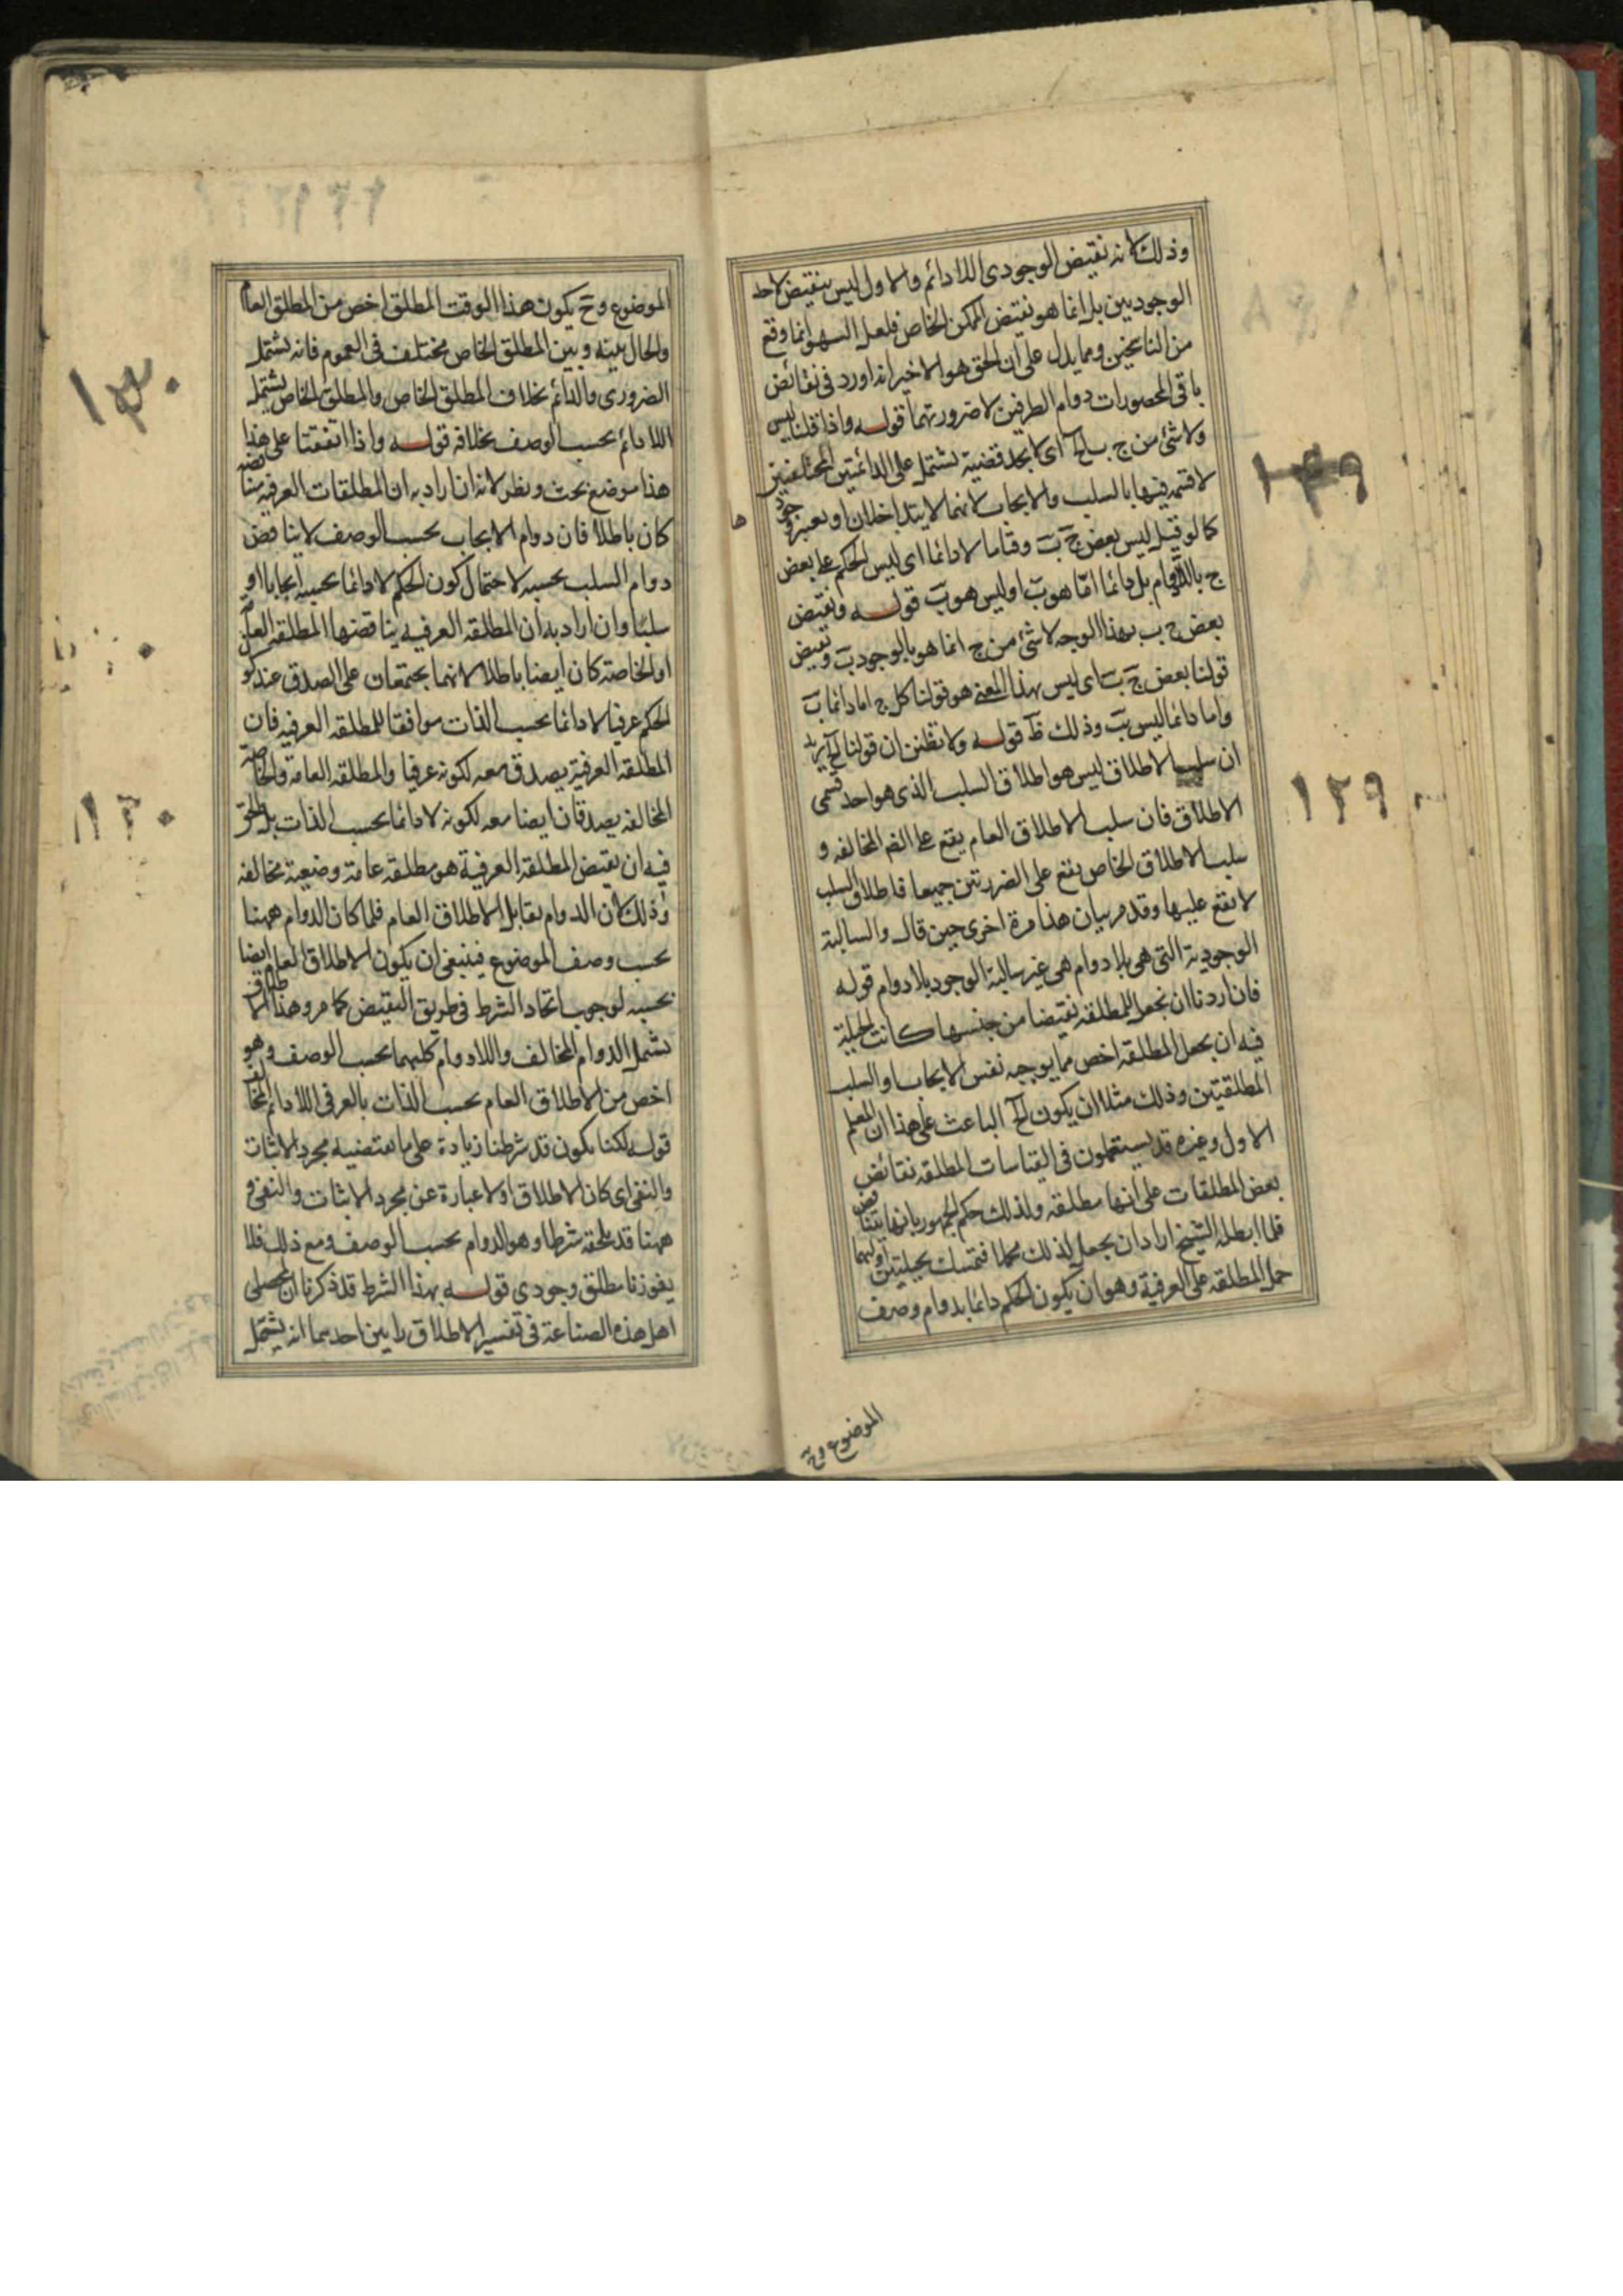 وذلك لانه نقيض الوجودى اللادائم والاول ليس بنقيض لاحد
الوجوديين بل انما هو نقيض الممكن الخاص فلعل السهو انما وقع
من الناسخين ومما يدل على ان الحق هو الاخير انه اورد فى نقائض
باقى المحصورات دوام الطرفين لا ضرورتهما قوله واذا قلنا ليس
ولا شئ من ج ب الخ اى لا نجد قضية تشتمل على الدائمتين المختلفتين
لا قسمة فيها بالسلب والايجاب لانهما لا يتداخلان او يعبر
كما لو قيل ليس بعض ج ب وقتا ما لا دائما اى ليس الحكم على بعض
ج باللادوام بل دائما اما هو ب او ليس هو ب قوله ونقيض
بعض ج ب بهذا الوجه لا شئ من ج انما هو بالوجود ب ونقيض
قولنا بعض ج ب اى ليس بهذا المعنى هو قولنا كل ج اما دائما ب
واما دائما ليس ب وذلك ظ قوله ولا تظنن ان قولنا الخ يريد
ان سلب الاطلاق ليس هو اطلاق السلب الذى هو احد قسمى
الاطلاق فان سلب الاطلاق العام يقع على الضر المخالفه و
سلب الاطلاق الخاص يقع على الضرورتين جميعا فاطلاق السلب
لا يقع عليها وقد مر بيان هذا مرة اخرى حين قال والسالبة
الوجودية التى هى بلا دوام هى غير سالبة الوجود بلا دوام قوله
فان اردنا ان نجعل للمطلقه نقيضا من جنسها كانت الحيلة
فيه ان نجعل المطلقه اخص مما يوجبه نفس الايجاب والسلب
المطلقيتين وذلك مثلا ان يكون الخ الباعث على هذا ان المعلم
الاول وغيره قد يستعملون فى القياسات المطلقه نقائض
بعض المطلقات على انها مطلقه ولذلك حكم الجمهور بانها تتناقض
فلما ابطله الشيخ اراد ان يجعل لذلك محملا فتمسك بحيلتين اولهما
حمل المطلقه على العرفية وهو ان يكون الحكم دائما بدوام وصف
الموضوع وح
١٢٩
الموضوع وح يكون هذا الوقت المطلق اخص من المطلق العام
والحال بينه وبين المطلق الخاص مختلف فى العموم فانه يشتمل
الضرورى والدائم بخلاف المطلق الخاص والمطلق الخاص يشتمل
اللادائم بحسب الوصف بخلافه قوله واذا اتفقتا على هذا
هذا موضع بحث ونظر لانه ان اراد به ان المطلقات العرفيه متناقضه
كان باطلا فان دوام الايجاب بحسب الوصف لا يناقض
دوام السلب بحسبه لاحتمال كون الحكم لا دائما بحسبه ايجابا او
سلبا وان اراد به ان المطلقه العرفيه يناقضها المطلقه العامه
او الخاصة كان ايضا باطلا لانهما يجتمعان على الصدق عند كو
الحكم عرفيا لا دائما بحسب الذات موافقا للمطلقه العرفيه فان
المطلقه العرفية يصدق معه لكونه عرفيا والمطلقه العامة والخاصة
المخالفه يصدقان ايضا معه لكونه لا دائما بحسب الذات بل الحق
فيه ان نقيض المطلقه العرفية هو مطلقه عامة وضعية مخالفه
وذلك لان الدوام يقابل الاطلاق العام فلما كان الدوام ههنا
بحسب وصف الموضوع فينبغى ان يكون الاطلاق العام ايضا
بحسبه لوجوب اتحاد الشرط فى طريق النقيض كما مر وهذا الاطلاق
يشمل الدوام المخالف واللادوام كليهما بحسب الوصف وهو
اخص من الاطلاق العام بحسب الذات بالعرفى اللادائم المخالف
قوله لكنا نكون قد شرطنا زيادة على ما يقتضيه مجرد الاثبات
والنفى اى كان الاطلاق اولا عبارة عن مجرد الاثبات والنفى و
ههنا قد لحقه شرط وهو الدوام بحسب الوصف ومع ذلك فلا
يفوزنا مطلق وجودى قوله بهذا الشرط قد ذكرنا ان لمحصلى
اهل هذه الصناعة فى تفسير الاطلاق رايين احدهما انه يشتمل
١٣٠
١٣٠